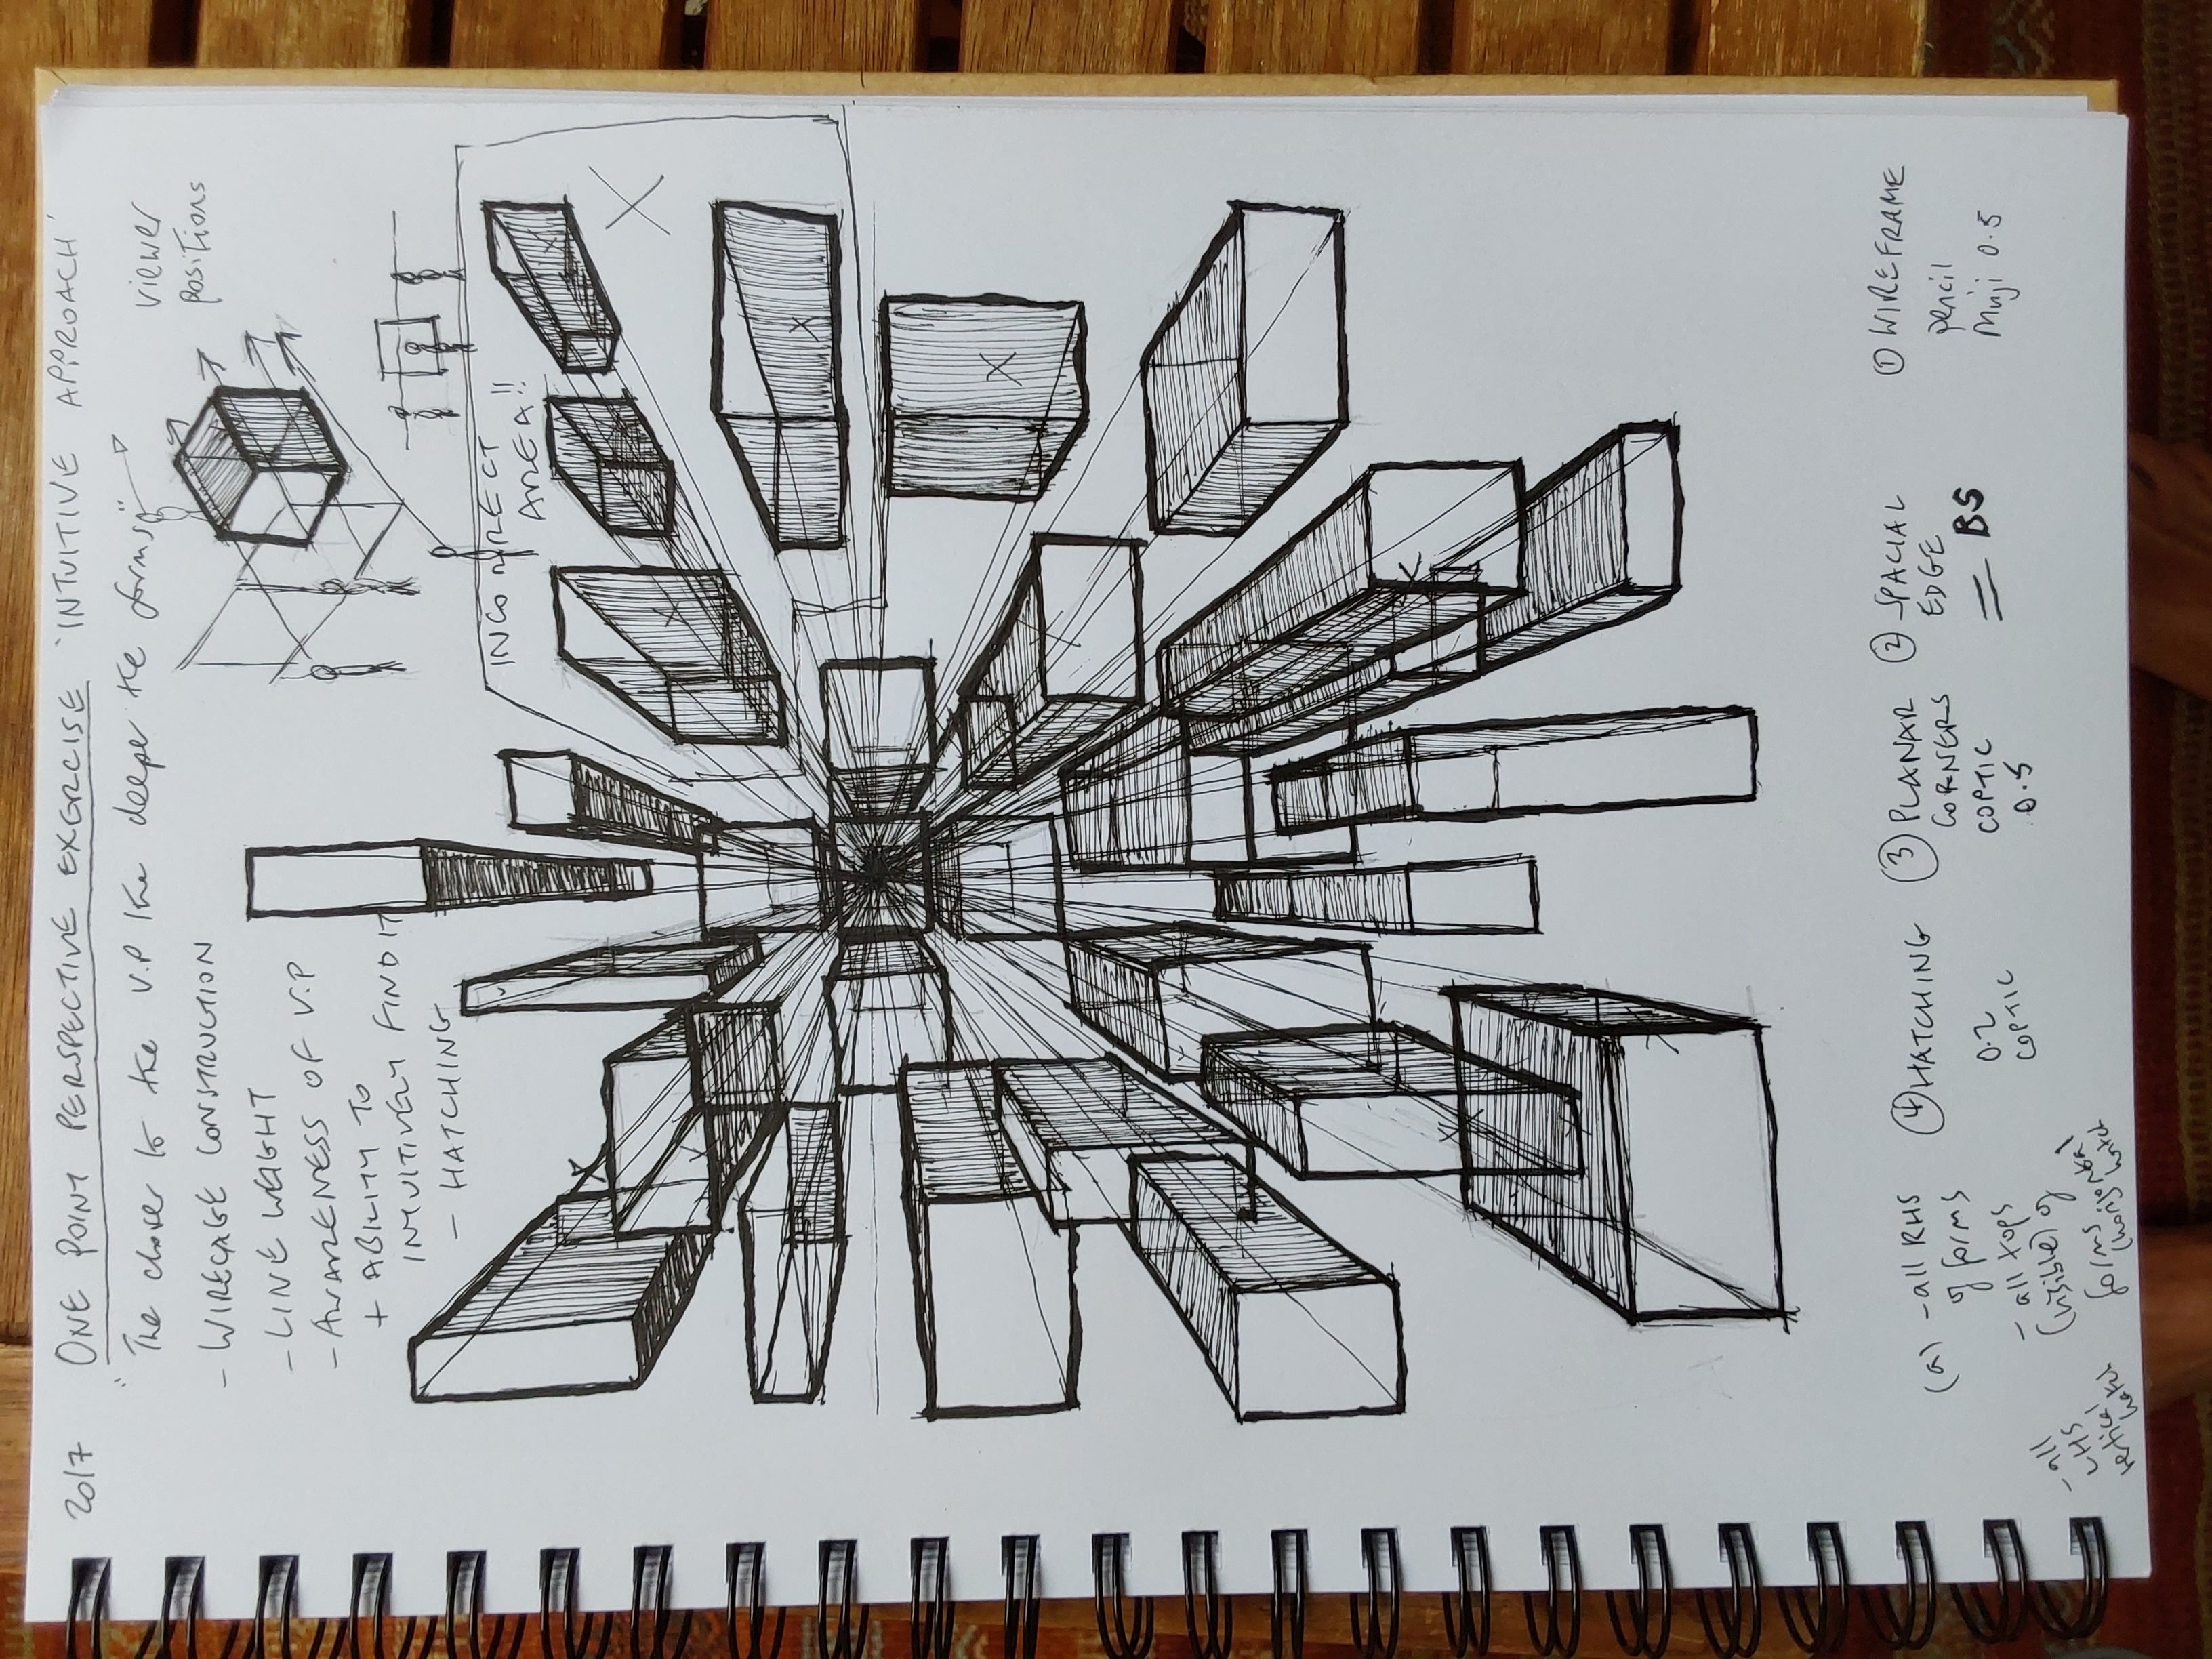 20/7 ONE POINT PERSPECTIVE EXERCISE 'INTUITIVE APPROACH'
"The closer to the V.P the deeper the forms"
- WIRECAGE CONSTRUCTION
- LINE WEIGHT
- AWARENESS OF V.P
+ ABILITY TO
INTUITIVELY FIND IT
- HATCHING
VIEWER
POSITIONS
INCORRECT
AREA!!
① WIREFRAME
pencil
Muji 0.5
② SPACIAL
EDGE
= BS
③ PLANAR
CORNERS
COPTIC
0.5
④ HATCHING
0.2
COPTIC
(a) - all RHS
of forms
- all tops
(visible) of
forms
- all
LHS